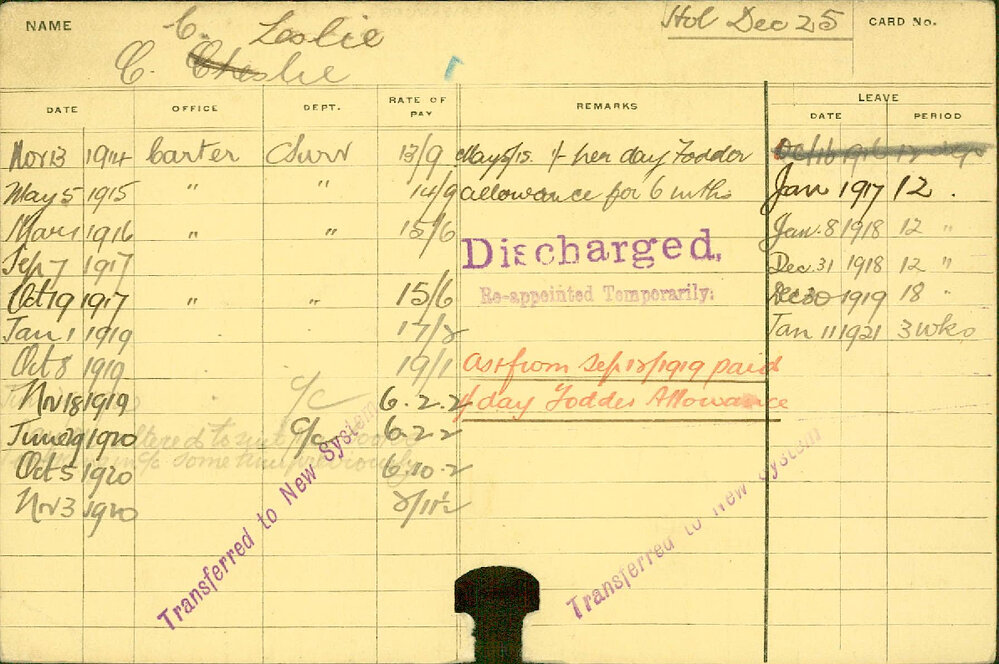 NAME C. Leslie Hol Dec 25 CARD No.
C. Cheslie
DATE OFFICE DEPT. RATE OF PAY REMARKS LEAVE
DATE PERIOD
Nov 13 1914 Carter Surv 13/9 May 5/15. 1/- per day Fodder Oct 16 1916 12 dys
May 5 1915 " " 14/9 allowance for 6 mths Jan 1917 12 .
Mar 1 1916 " " 15/6 Jan. 8 1918 12 "
Discharged.
Sep 7 1917 Dec. 31 1918 12 "
Oct 19 1917 " " 15/6 Re-appointed Temporarily: Dec 30 1919 18 "
Jan 1 1919 17/2 Jan 11 1921 3 wks
Oct 8 1919 19/1 As from Sep 12/1919 paid
Nov 18 1919 c/c 6.2.2 1/ day Fodder Allowance
June 29 1920 c/c 6.2.2
altered to
sometime previously
Oct 5 1920 6.10.2
Nov 3 1920 2/11½
Transferred to New System
Transferred to New System